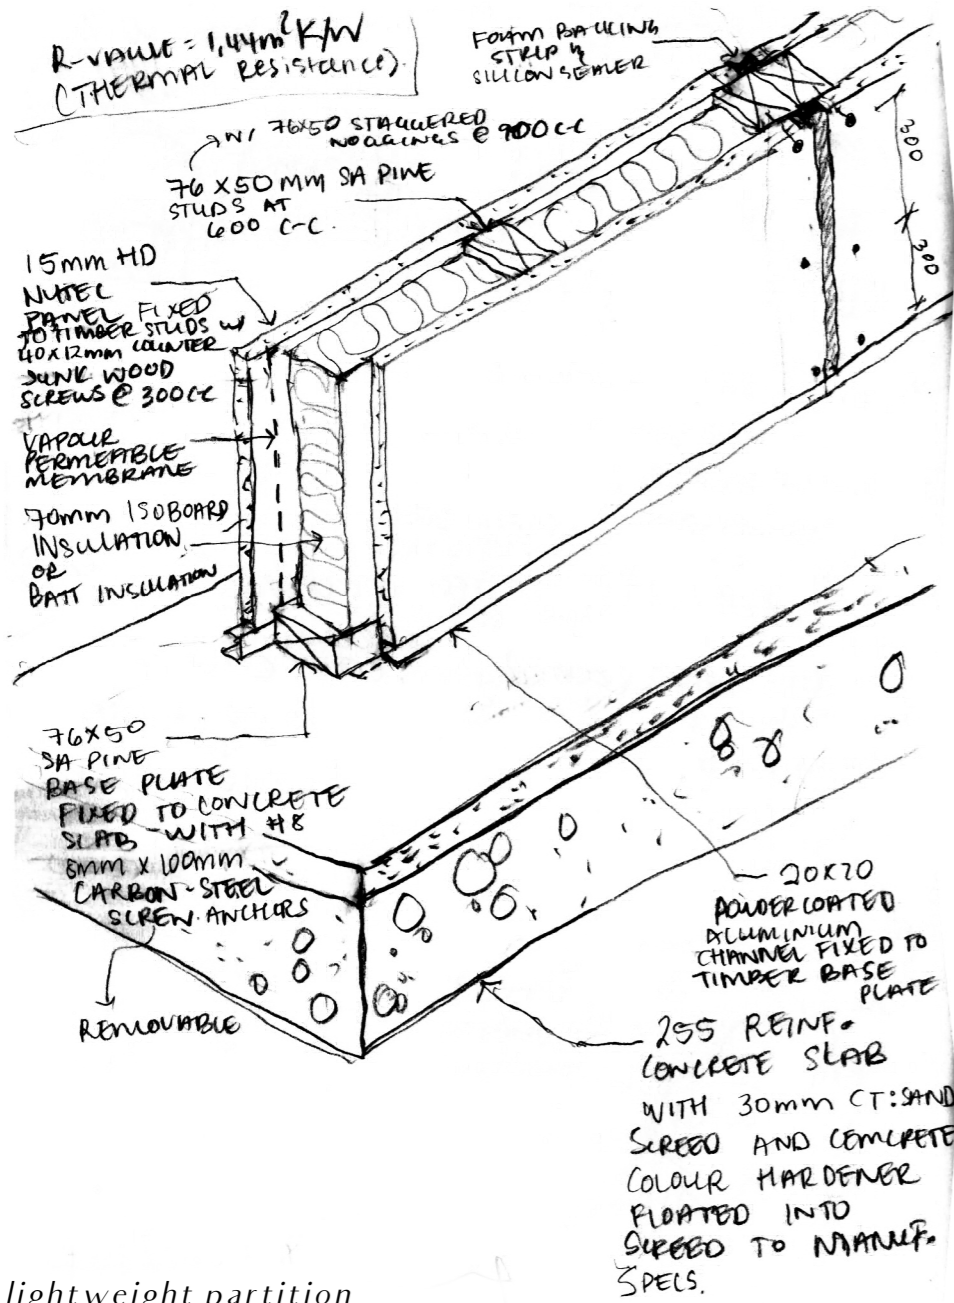 R-VALUE = 1,44m² K/W
(THERMAL Resistance).
FOAM BACKING
STRIP &
SILICONSEALER
W/ 76X50 STAGGERED
NOGGINGS @ 900 C-C
76 X 50 MM SA PINE
STUDS AT
600 C-C.
300
300
15mm HD
NUTEC
PANEL FIXED
TO TIMBER STUDS W/
40X12mm COUNTER
SUNK WOOD
SCREWS @ 300 CC
VAPOUR
PERMEABLE
MEMBRANE
70mm ISOBOARD
INSULATION
OR
BATT INSULATION
76X50
SA PINE
BASE PLATE
FIXED TO CONCRETE
SLAB WITH #8
8mm X 100mm
CARBON-STEEL
SCREW ANCHORS
REMOVABLE
20X20
POWDERCOATED
ALUMINIUM
CHANNEL FIXED TO
TIMBER BASE
PLATE
255 REINF.
CONCRETE SLAB
WITH 30mm CT:SAND
SCREED AND CEMCRETE
COLOUR HARDENER
FLOATED INTO
SCREED TO MANUF.
SPECS.
lightweight partition